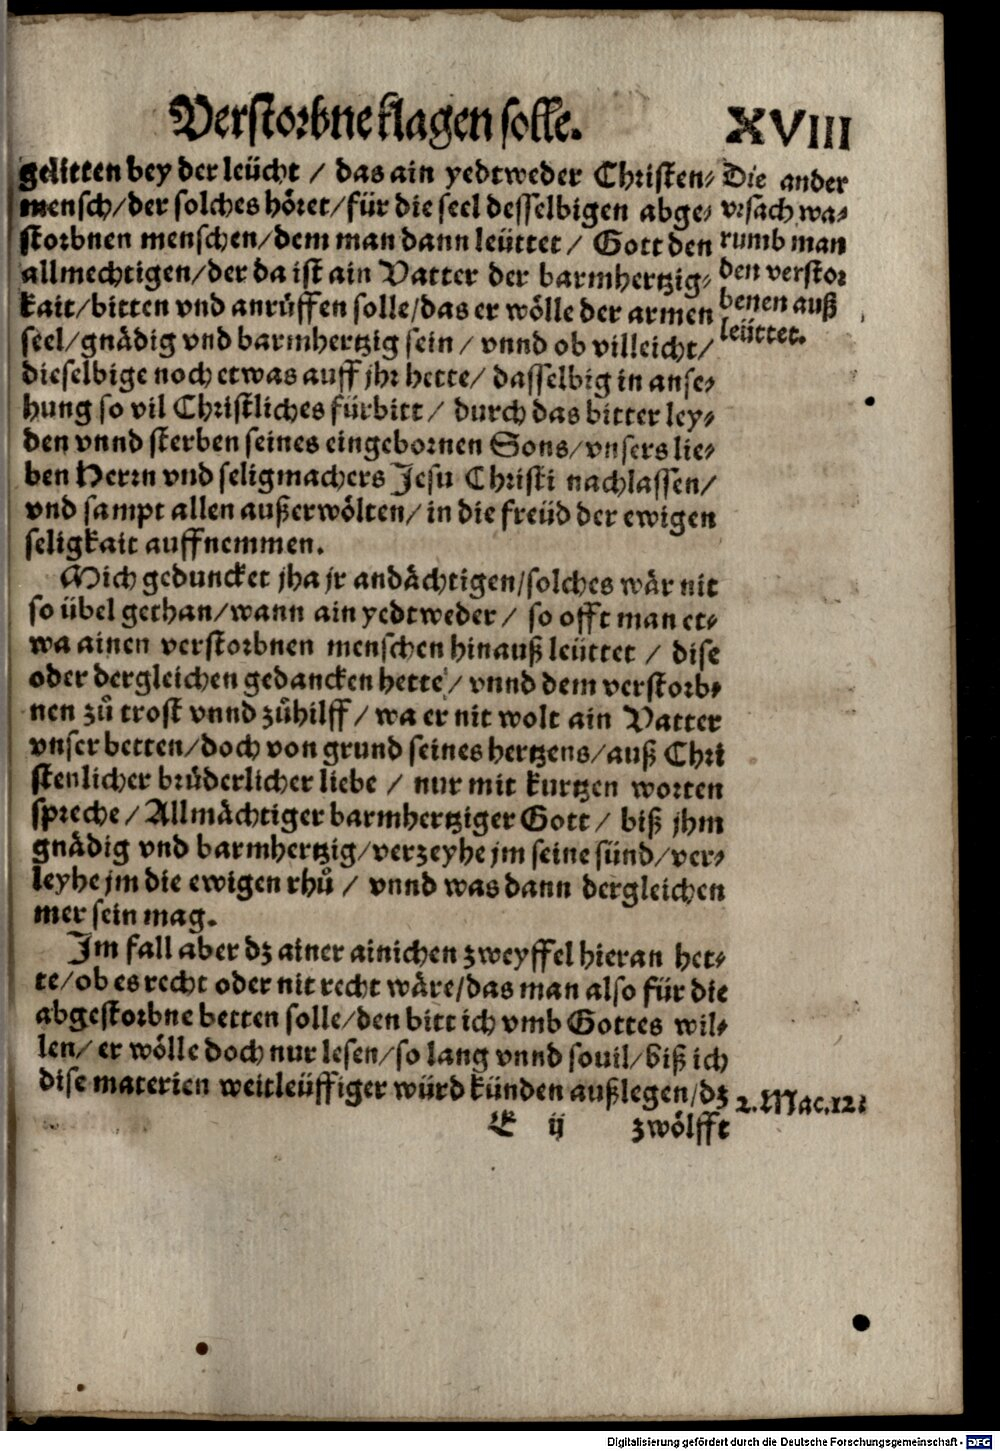 Verstorbne klagen solle. XVIII
gelitten bey der leücht / das ain yedtweder Christen⸗
mensch/der solches höret/für die seel desselbigen abge⸗
storbnen menschen/dem man dann leüttet / Gott den
allmechtigen/der da ist ain Vatter der barmhertzig⸗
kait/bitten vnd anrüffen solle/das er wölle der armen
seel/gnädig vnd barmhertzig sein / vnnd ob villeicht/
dieselbige noch etwas auff jhr hette/ dasselbig in anse⸗
hung so vil Christliches fürbitt / durch das bitter ley⸗
den vnnd sterben seines eingebornen Sons/vnsers lie⸗
ben Herrn vnd seligmachers Jesu Christi nachlassen/
vnd sampt allen außerwölten/in die freüd der ewigen
seligkait auffnemmen.
Mich geduncket jha jr andächtigen/solches wär nit
so übel gethan/wann ain yedtweder / so offt man et⸗
wa ainen verstorbnen menschen hinauß leüttet / dise
oder dergleichen gedancken hette / vnnd dem verstorb⸗
nen zů trost vnnd zůhilff / wa er nit wolt ain Vatter
vnser betten/doch von grund seines hertzens/auß Chri
stenlicher brüderlicher liebe / nur mit kurtzen worten
spreche / Allmächtiger barmhertziger Gott / biß jhm
gnädig vnd barmhertzig/verzeyhe jm seine sünd/ver⸗
leyhe jm die ewigen rhů / vnnd was dann dergleichen
mer sein mag.
Im fall aber dz ainer ainichen zweyffel hieran het⸗
te/ob es recht oder nit recht wäre/das man also für die
abgestorbne betten solle/den bitt ich vmb Gottes wil⸗
len/ er wölle doch nur lesen/so lang vnnd souil/biß ich
dise materien weitleüffiger würd künden außlegen/dz
E ij zwölfft
Die ander
vrsach wa⸗
rumb man
den verstor
benen auß
leüttet.
2.Mac.12.
Digitalisierung gefördert durch die Deutsche Forschungsgemeinschaft - DFG